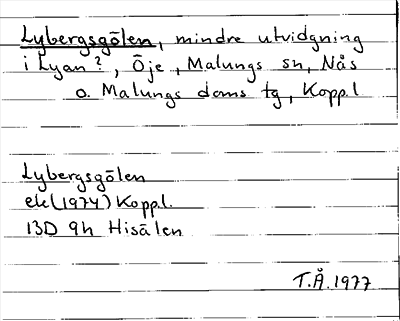 Lybergsgölen, mindre utvidgning
i Lyan?, Öje, Malungs sn, Nås
o. Malungs doms tg, Koppl
Lybergsgölen
ek(1974) Koppl.
13D 9h Hisälen
T.Å. 1977